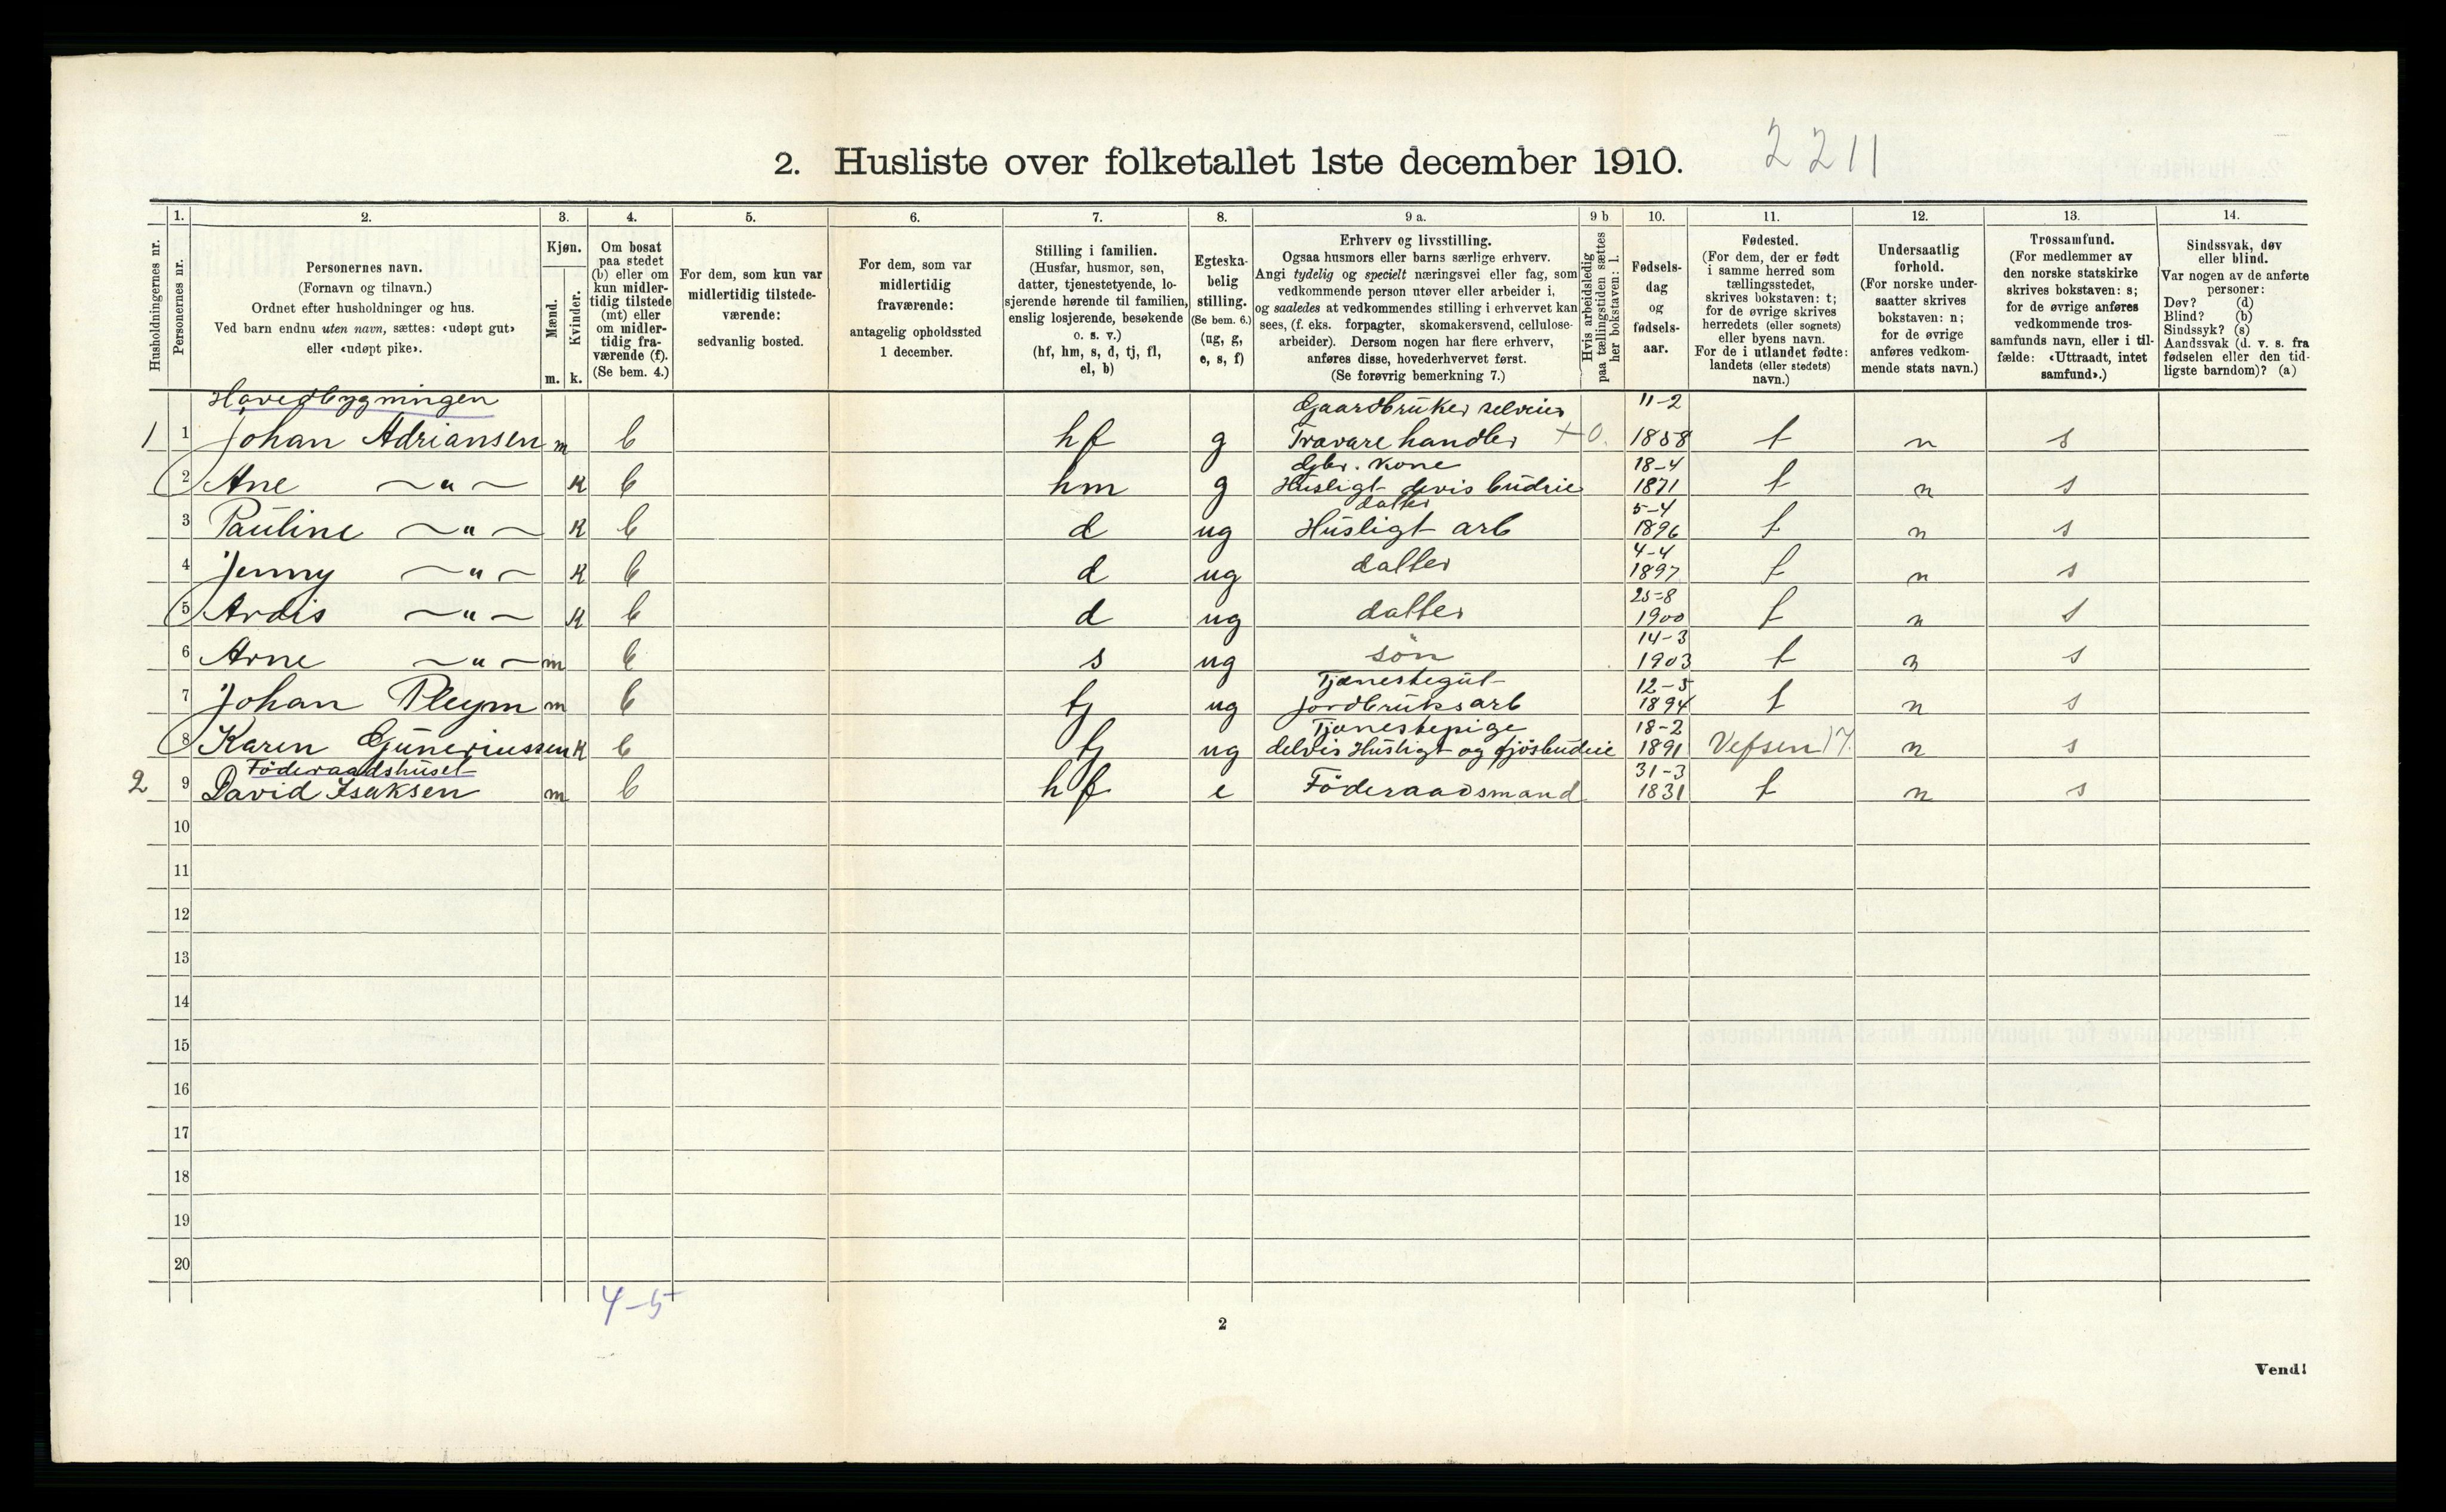 2. Husliste over folketallet 1ste december 1910.
2211
Husholdningernes nr.
1.
Personernes nr.
2.
Personernes navn.
(Fornavn og tilnavn.)
Ordnet efter husholdninger og hus.
Ved barn endnu uten navn, sættes: «udøpt gut»
eller «udøpt pike».
3.
Kjøn.
Mænd.
Kvinder.
m. k.
4.
Om bosat
paa stedet
(b) eller om
kun midler-
tidig tilstede
(mt) eller
om midler-
tidig fra-
værende (f).
(Se bem. 4.)
5.
For dem, som kun var
midlertidig tilstede-
værende:
sedvanlig bosted.
6.
For dem, som var
midlertidig
fraværende:
antagelig opholdssted
1 december.
7.
Stilling i familien.
(Husfar, husmor, søn,
datter, tjenestetyende, lo-
sjerende hørende til familien,
enslig losjerende, besøkende
o. s. v.)
(hf, hm, s, d, tj, fl,
el, b)
8.
Egteska-
belig
stilling.
(Se bem. 6.)
(ug, g,
e, s, f)
9 a.
Erhverv og livsstilling.
Ogsaa husmors eller barns særlige erhverv.
Angi tydelig og specielt næringsvei eller fag, som
vedkommende person utøver eller arbeider i,
og saaledes at vedkommendes stilling i erhvervet kan
sees, (f. eks. forpagter, skomakersvend, cellulose-
arbeider). Dersom nogen har flere erhverv,
anføres disse, hovederhvervet først.
(Se forøvrig bemerkning 7.)
9 b
Hvis arbeidsledig
paa tællingstiden sættes
her bokstaven: l.
10.
Fødsels-
dag
og
fødsels-
aar.
11.
Fødested.
(For dem, der er født
i samme herred som
tællingsstedet,
skrives bokstaven: t;
for de øvrige skrives
herredets (eller sognets)
eller byens navn.
For de i utlandet fødte:
landets (eller stedets)
navn.)
12.
Undersaatlig
forhold.
(For norske under-
saatter skrives
bokstaven: n;
for de øvrige
anføres vedkom-
mende stats navn.)
13.
Trossamfund.
(For medlemmer av
den norske statskirke
skrives bokstaven: s;
for de øvrige anføres
vedkommende tros-
samfunds navn, eller i til-
fælde: «Uttraadt, intet
samfund».)
14.
Sindssvak, døv
eller blind.
Var nogen av de anførte
personer:
Døv? (d)
Blind? (b)
Sindssyk? (s)
Aandssvak (d. v. s. fra
fødselen eller den tid-
ligste barndom)? (a)
Hovedbygningen Gaardbruker selveier 11-2
1 1 Johan Adriansen m b hf g Travarehandler +0. 1858 t n s
Gbr. kone 18-4
2 Ane ~"~ k b hm g Husligt devis budeie 1871 t n s
datter 5-4
3 Pauline ~"~ k b d ug Husligt arb 1896 t n s
4-4
4 Jenny ~"~ k b d ug datter 1897 t n s
25-8
5 Ardis ~"~ k b d ug datter 1900 t n s
14-3
6 Arne ~"~ m b s ug søn 1903 t n s
Tjænestegut 12-5
7 Johan Pleym m b tj ug jordbruksarb 1894 t n s
Tjænestepige 18-2
8 Karen Guneriussen k b tj ug delvis Husligt og fjøsbudeie 1891 Vefsen 17 n s
Föderaadshuset 31-3
2 9 David Isaksen m b hf e Föderaadsmand 1831 t n s
10
11
12
13
14
15
16
17
18
19
20
4-5
2
Vend!